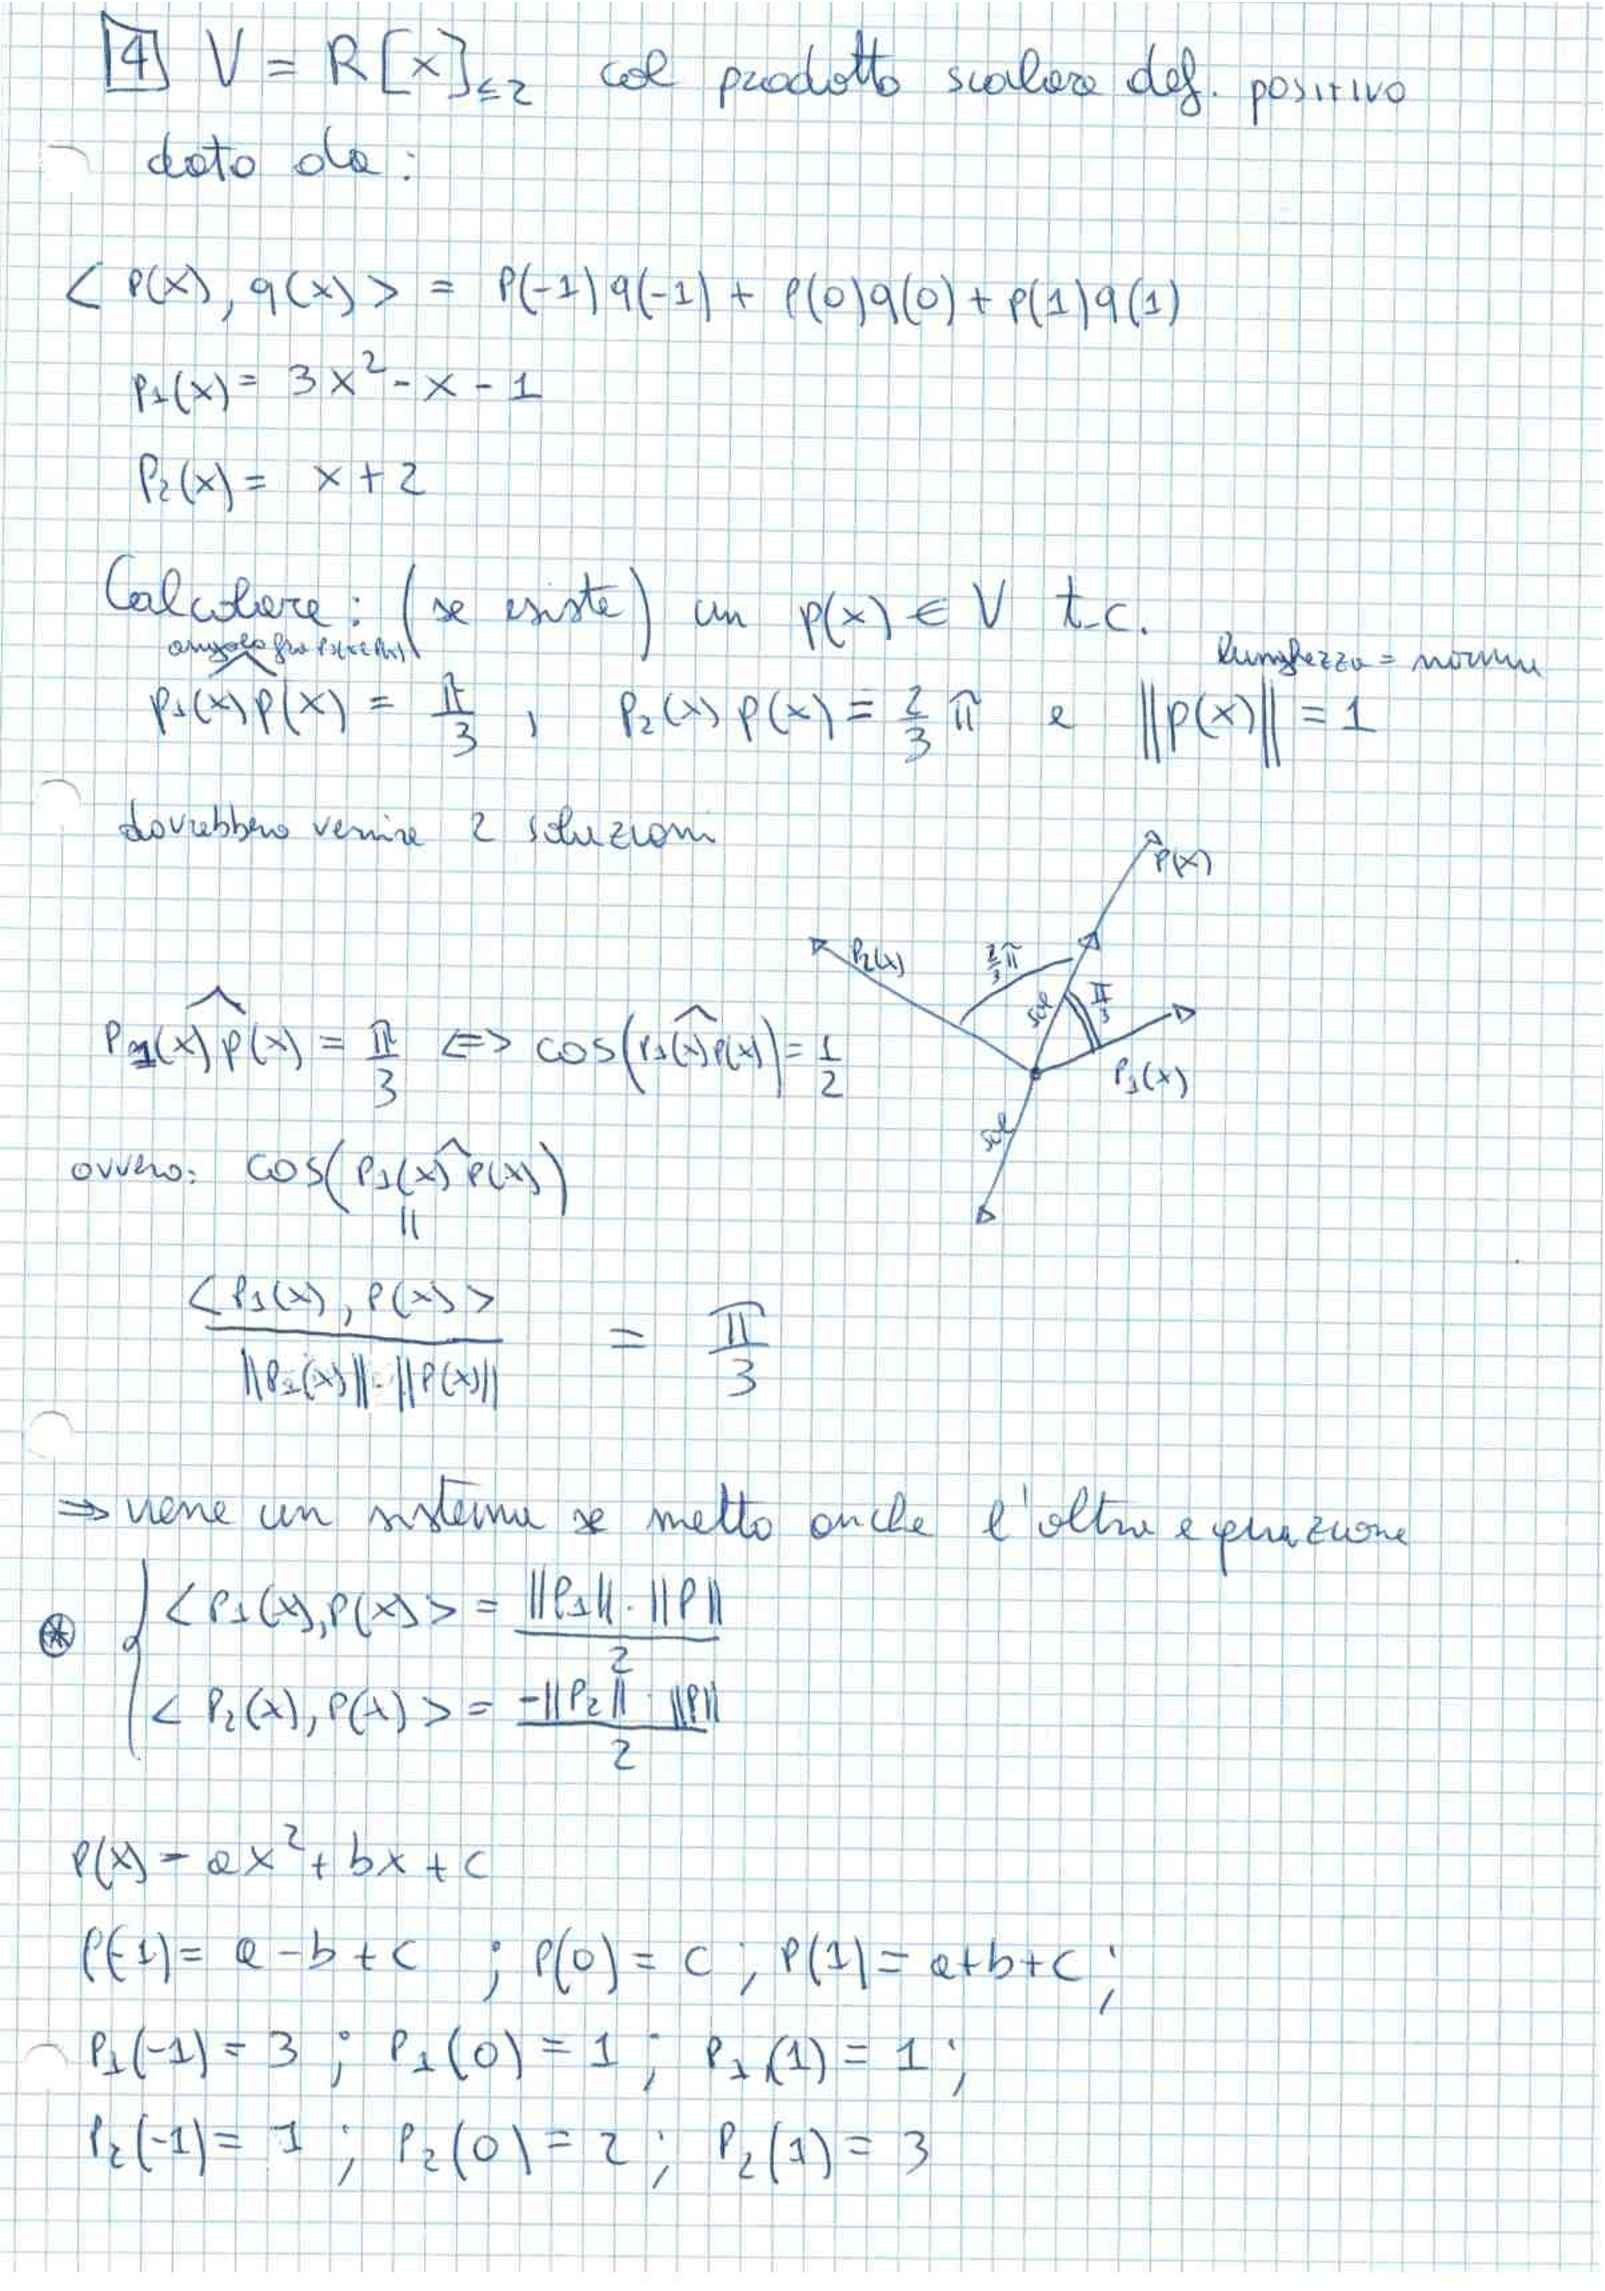 4 V = R[x]≤2 col prodotto scalare def. positivo
dato da:
< p(x), q(x) > = p(-1)q(-1) + p(0)q(0) + p(1)q(1)
p1(x) = 3x² - x - 1
p2(x) = x + 2
Calcolare: (se esiste) un p(x) ∈ V t.c.
angolo fra p1(x) e p(x)
lunghezza = norma
p1(x)p(x) = π/3 , p2(x) p(x) = 2/3 π e ||p(x)|| = 1
dovrebbero venire 2 soluzioni
p(x)
p2(x)
2/3 π
sol
π/3
p1(x)
sol
p1(x)p(x) = π/3 <=> cos(p1(x)p(x)) = 1/2
ovvero: cos(p1(x) p(x))
||
<p1(x), p(x)> / ||p1(x)|| · ||p(x)|| = π/3
=> viene un sistema se metto anche l'altra equazione
⊛ { <p1(x), p(x)> = ||p1|| · ||p|| / 2
<p2(x), p(x)> = -||p2|| · ||p|| / 2
p(x) = ax² + bx + c
p(-1) = a - b + c ; p(0) = c ; p(1) = a+b+c ;
p1(-1) = 3 ; p1(0) = 1 ; p1(1) = 1 ;
p2(-1) = 1 ; p2(0) = 2 ; p2(1) = 3